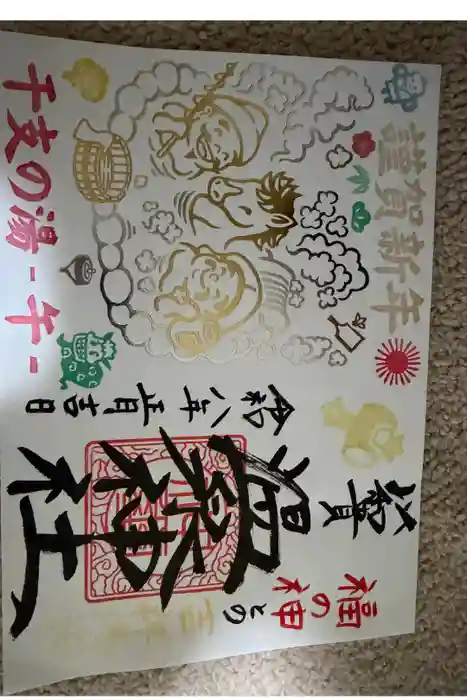 謹賀新年
福の神との
温泉神社
令和八年正月吉日
干支の湯-午-